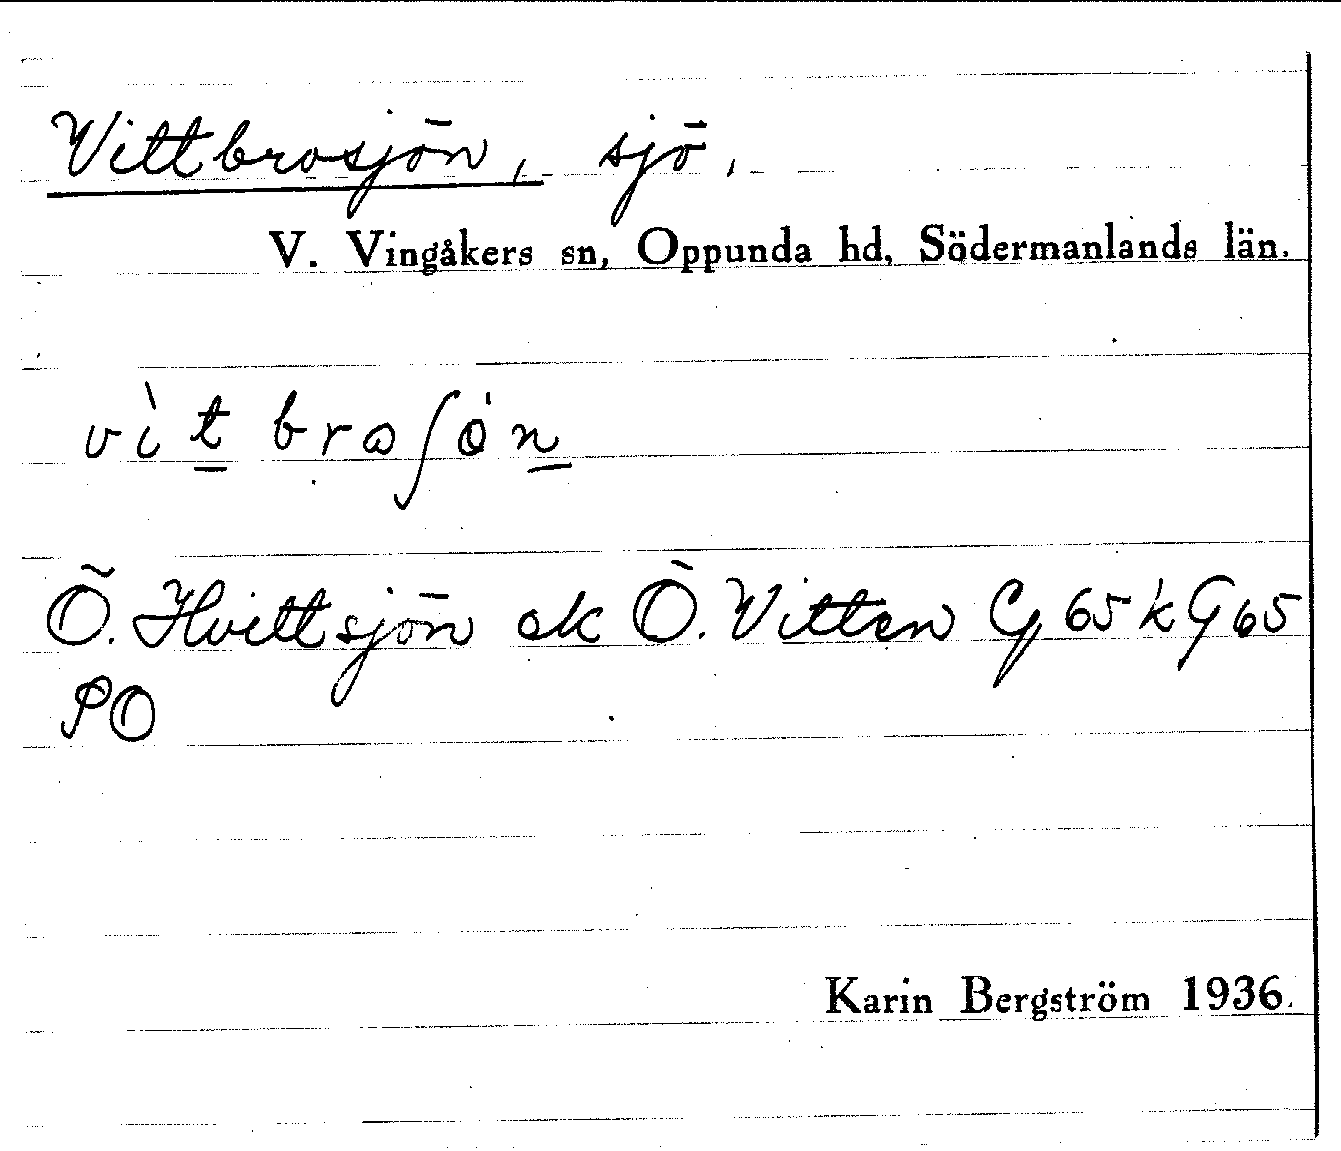 Vittbrosjön, sjö,
V. Vingåkers sn, Oppunda hd, Södermanlands län.
vìt broʃön
Ö. Hvittsjön ek Ö. Vitten Cg 65 k G 65
PO
Karin Bergström 1936.